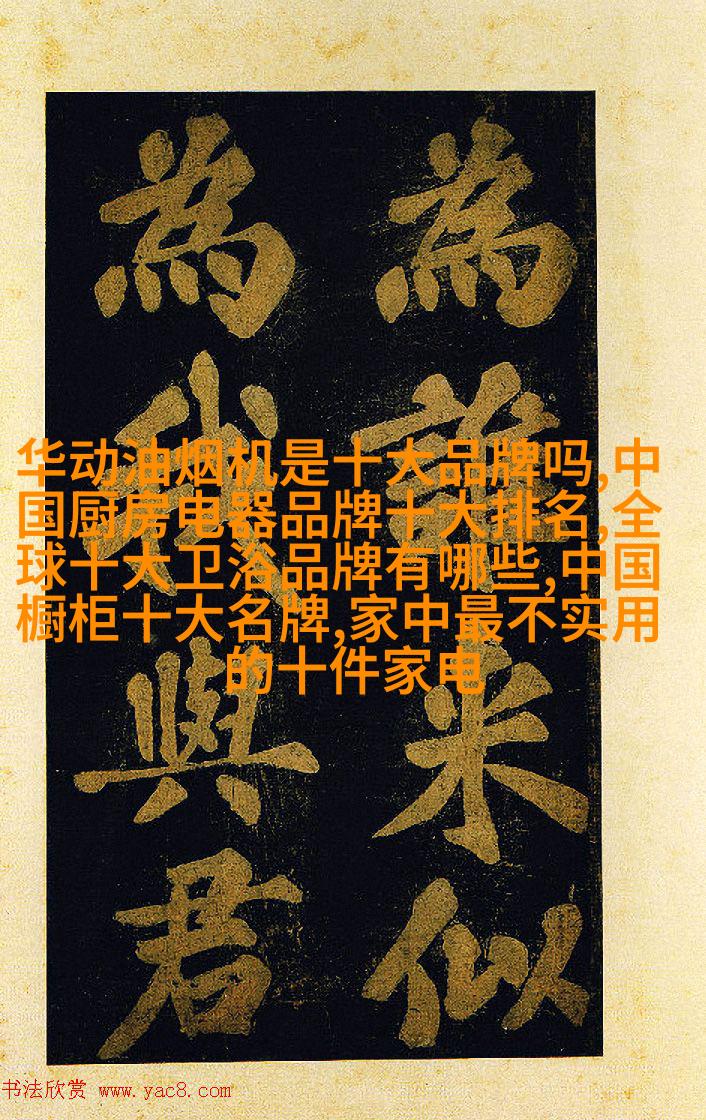 華动油烟机是十大品牌吗,中
国厨房电器品牌十大排名,全
球十大卫浴品牌有哪些,中国
橱柜十大名牌,家中最不实用
的十件家电
為誰似
為我與君
书法欣赏 www.yac8.com